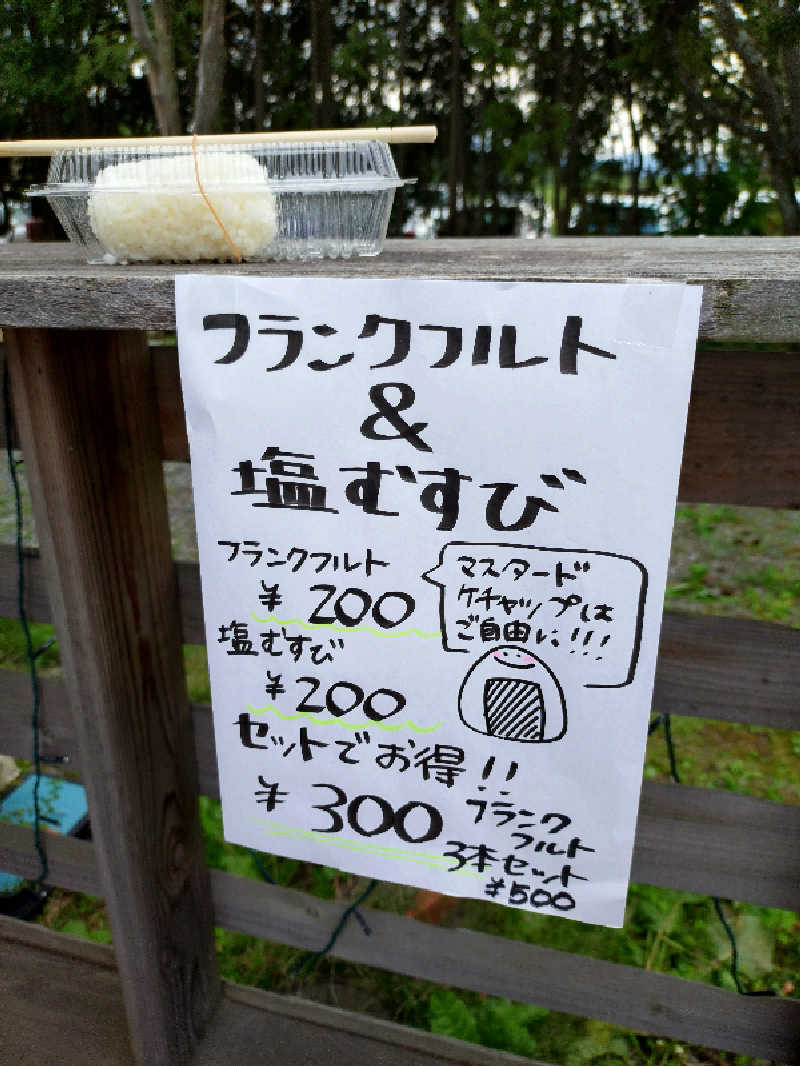 フランクフルト
&
塩むすび
フランクフルト
¥200
塩むすび
¥200
マスタード
ケチャップは
ご自由に!!!
セットでお得!!
¥300
フランク
フルト
3本セット
¥500